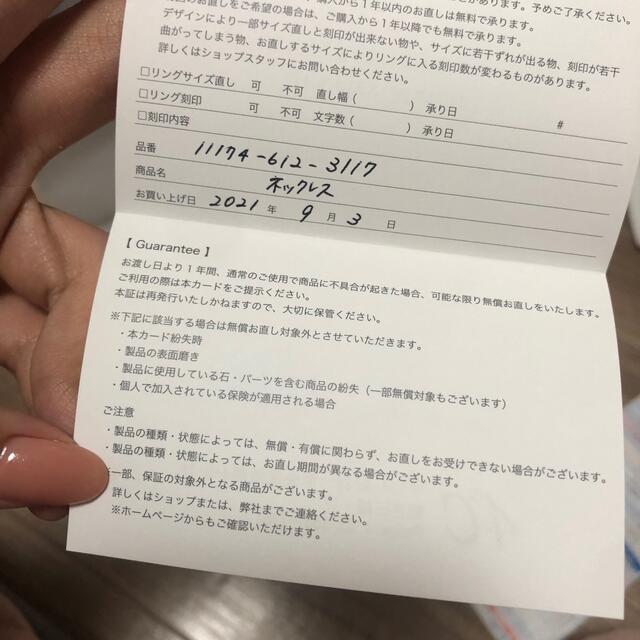 購入から1年以内のお直しは無料で承ります。予めご了承ください。
お直しをご希望の場合は、ご購入から1年以降でも無料で承ります。
デザインにより一部サイズ直しと刻印が出来ない物や、サイズに若干ずれが出る物、刻印が若干
曲がってしまう物、お直しするサイズによりリングに入る刻印数が変わるものがあります。
詳しくはショップスタッフにお問い合わせください。
□リングサイズ直し 可 不可 直し幅 ( ) 承り日 #
□リング刻印 可 不可 文字数 ( ) 承り日
□刻印内容
品番 11174-612-3117
商品名 ネックレス
お買い上げ日 2021 年 9 月 3 日
【 Guarantee 】
お渡し日より1年間、通常のご使用で商品に不具合が起きた場合、可能な限り無償お直しをいたします。
ご利用の際は本カードをご提示ください。
本証は再発行いたしかねますので、大切に保管ください。
※下記に該当する場合は無償お直し対象外とさせていただきます。
・本カード紛失時
・製品の表面磨き
・製品に使用している石・パーツを含む商品の紛失（一部無償対象もございます）
・個人で加入されている保険が適用される場合
ご注意
・製品の種類・状態によっては、無償・有償に関わらず、お直しをお受けできない場合がございます。
・製品の種類・状態によっては、お直し期間が異なる場合がございます。
※一部、保証の対象外となる商品がございます。
詳しくはショップまたは、弊社までご連絡ください。
※ホームページからもご確認いただけます。